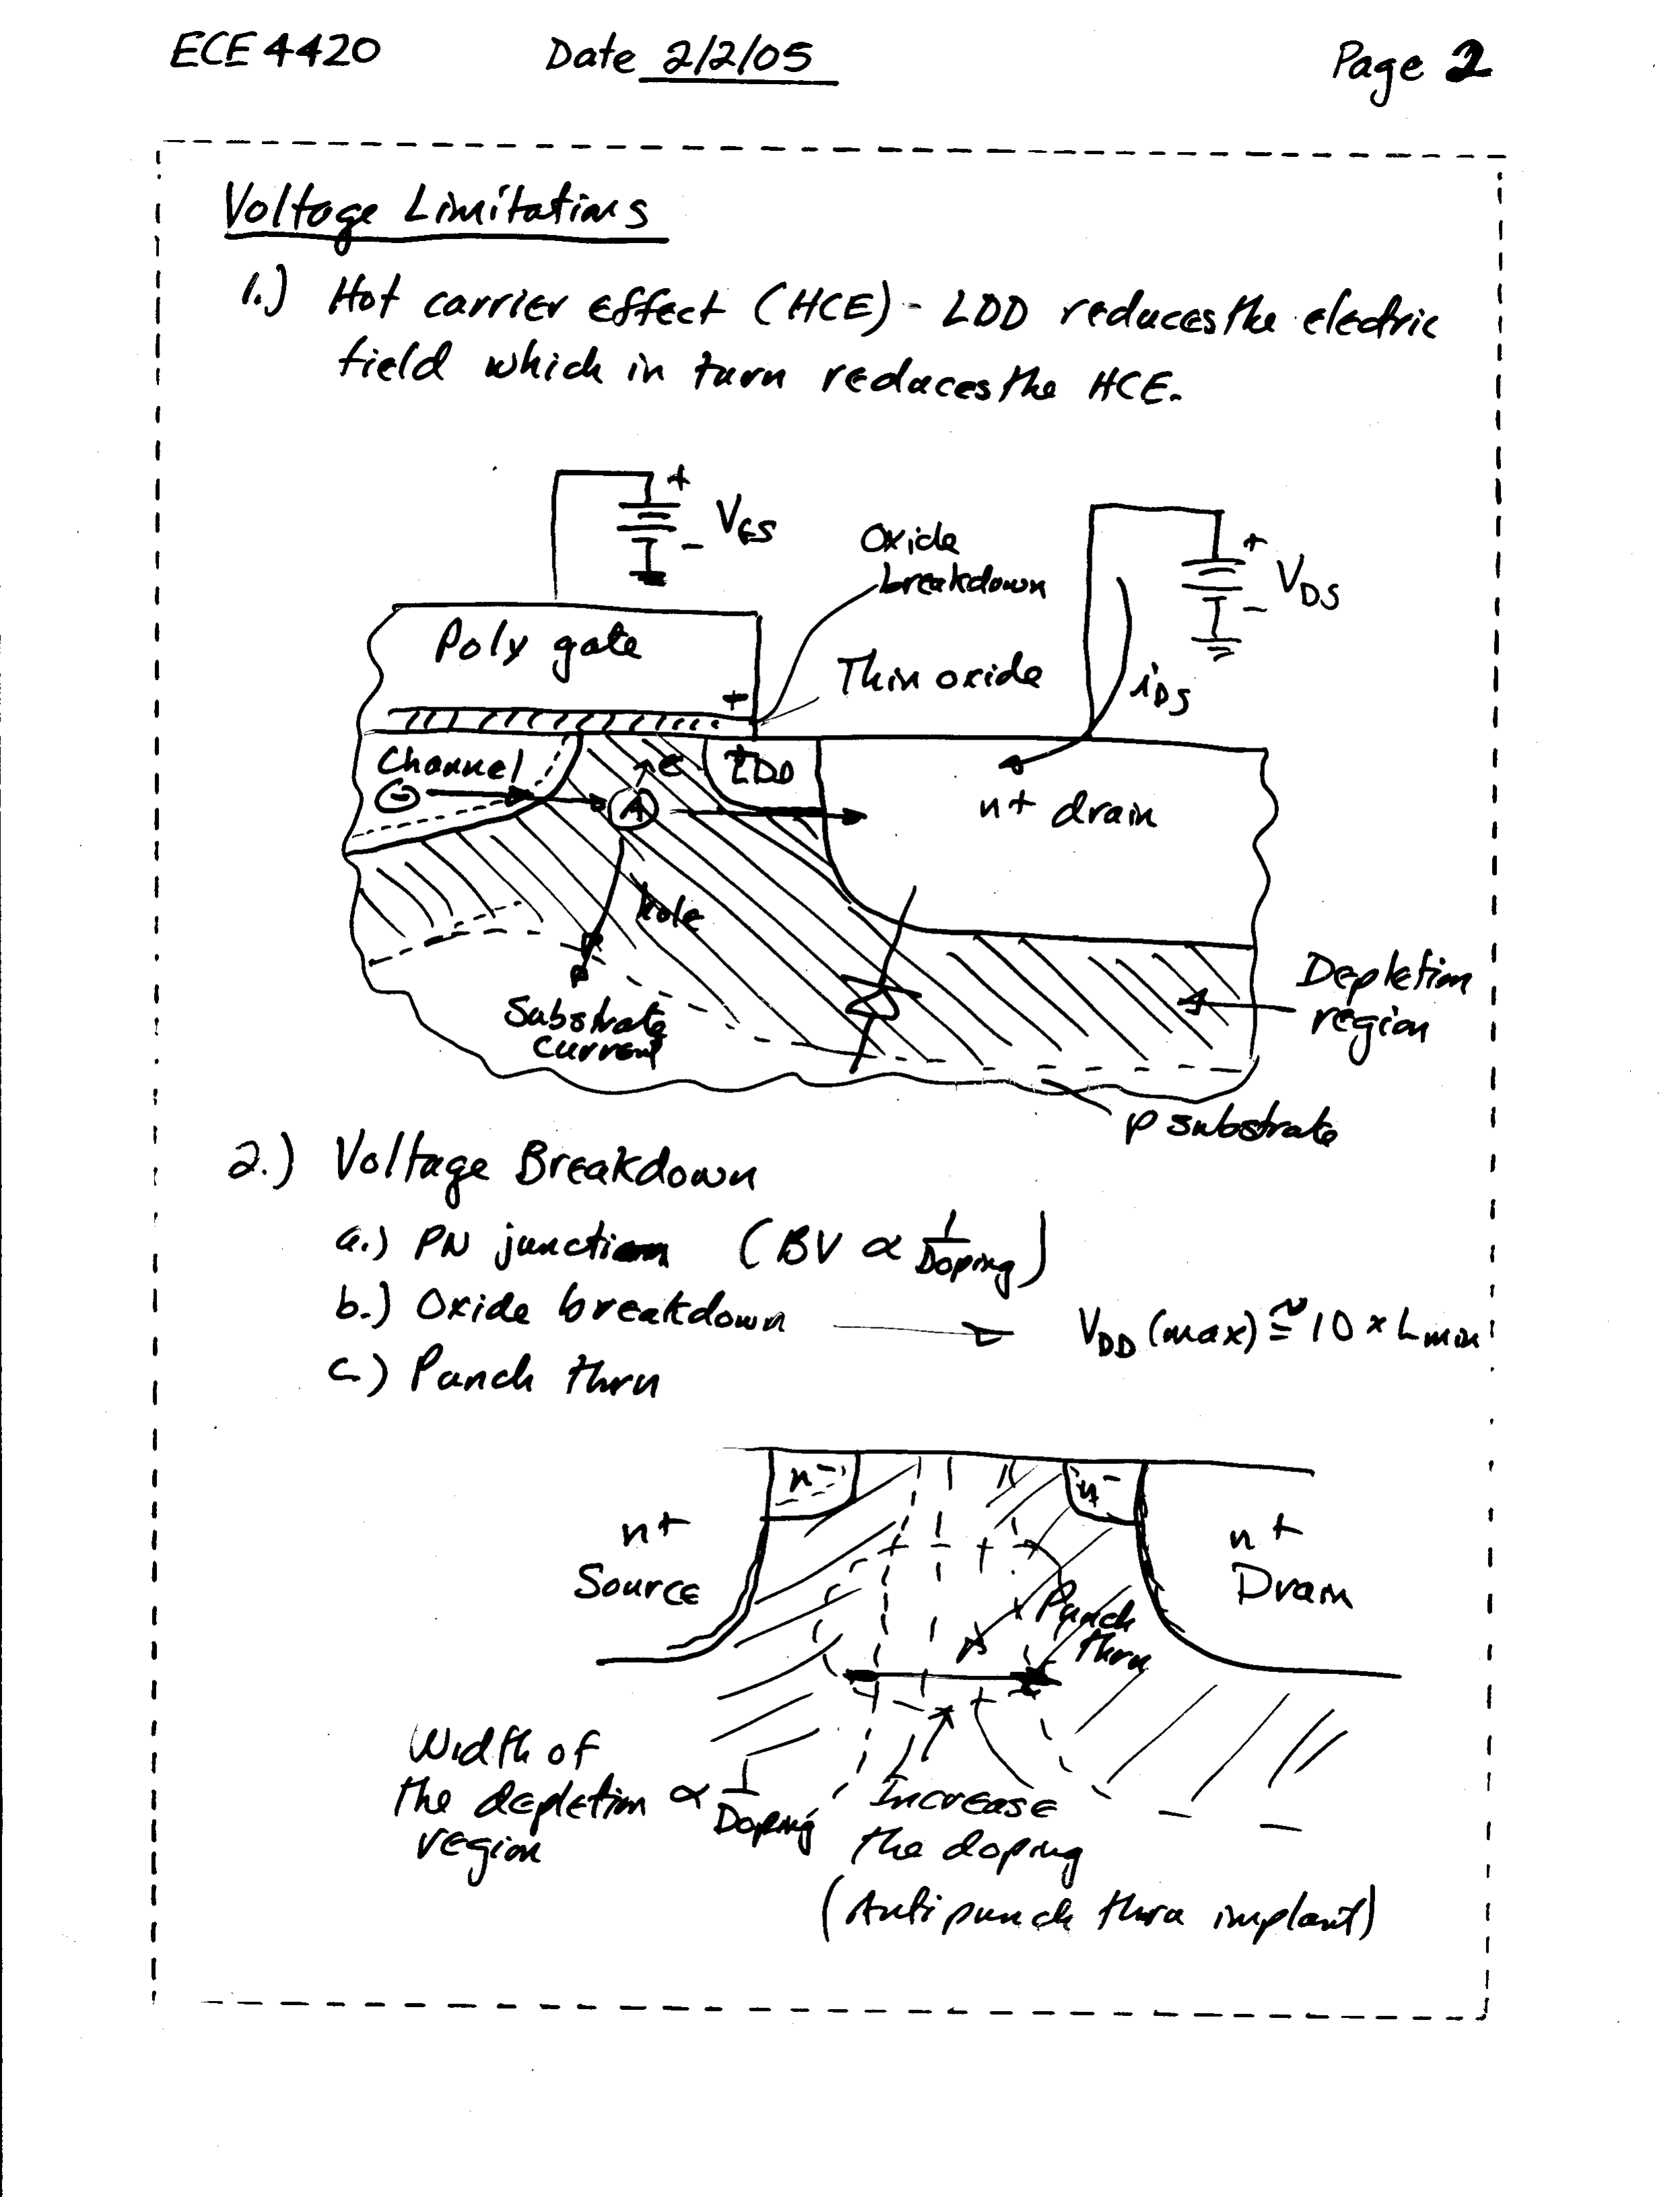 ECE 4420 Date 2/2/05 Page 2
Voltage Limitations
1.) Hot carrier effect (HCE) - LDD reduces the electric
field which in turn reduces the HCE.
+
VGS
-
Oxide
breakdown
+
VDS
-
Poly gate
+
Thin oxide
iDS
Channel
e
LDD
n+ drain
hole
Substrate
current
Depletion
region
p substrate
2.) Voltage Breakdown
a.) PN junction (BV ∝ 1/Doping)
b.) Oxide breakdown → VDD (max) ≅ 10 x Lmin
c.) Punch thru
n- n-
n+
Source
n+
Drain
Punch
thru
Width of
the depletion ∝ 1/Doping
region
Increase
the doping
(Anti punch thru implant)